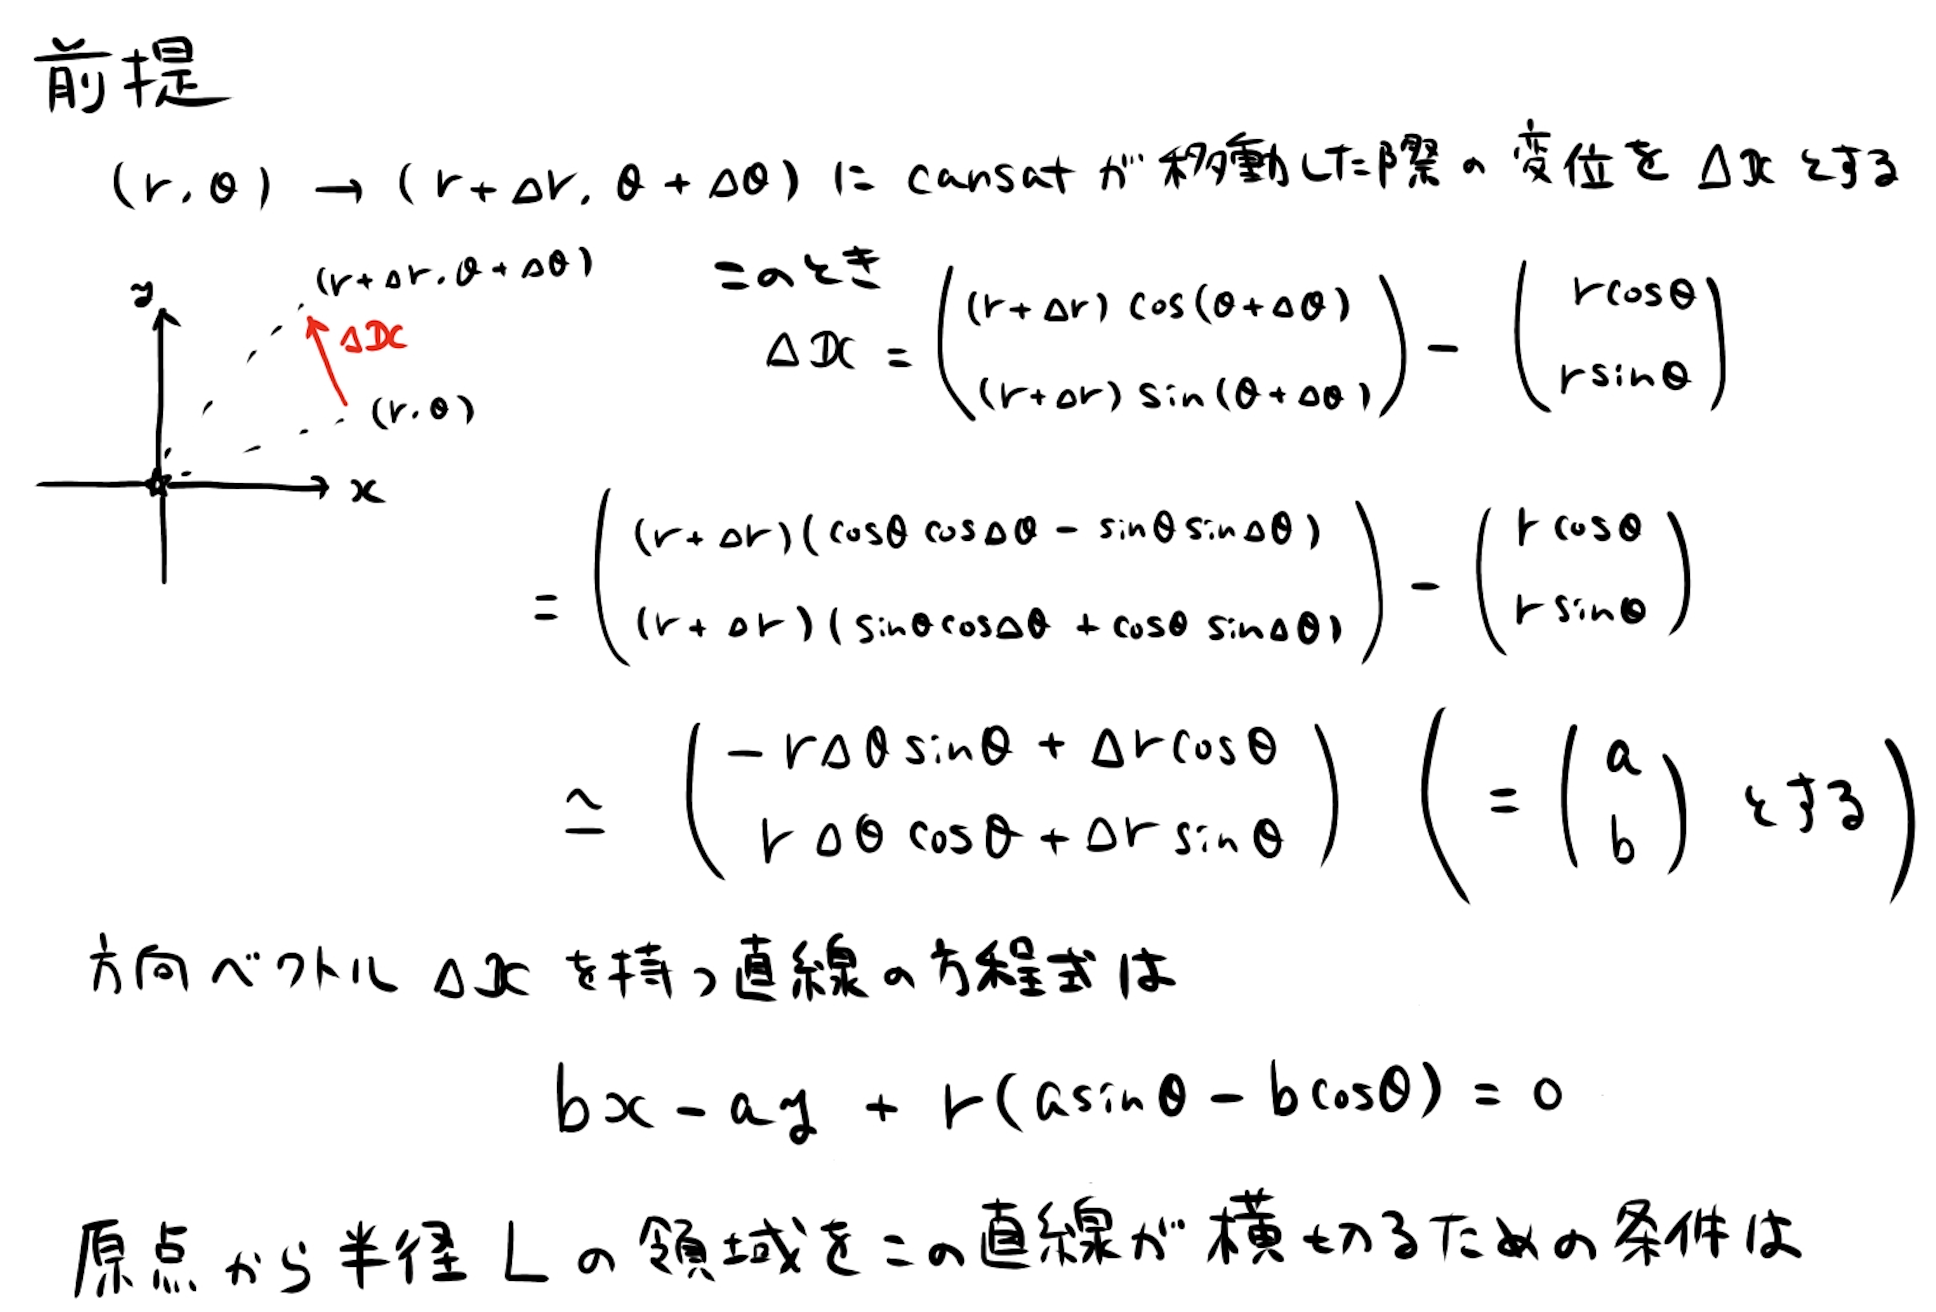 前提
(r, θ) → (r+Δr, θ+Δθ) に cansat が移動した際の変位を Δx とする
y
(r+Δr, θ+Δθ)
Δx
(r, θ)
x
このとき
Δx = ( (r+Δr) cos(θ+Δθ) (r+Δr) sin(θ+Δθ) ) - ( rcosθ rsinθ )
= ( (r+Δr)(cosθ cosΔθ - sinθ sinΔθ) (r+Δr)(sinθ cosΔθ + cosθ sinΔθ) ) - ( r cosθ r sinθ )
≃ ( -rΔθ sinθ + Δr cosθ rΔθ cosθ + Δr sinθ ) ( = ( a b ) とする )
方向ベクトル Δx を持つ直線の方程式は
bx - ay + r(asinθ - bcosθ) = 0
原点から半径 L の領域をこの直線が横切るための条件は